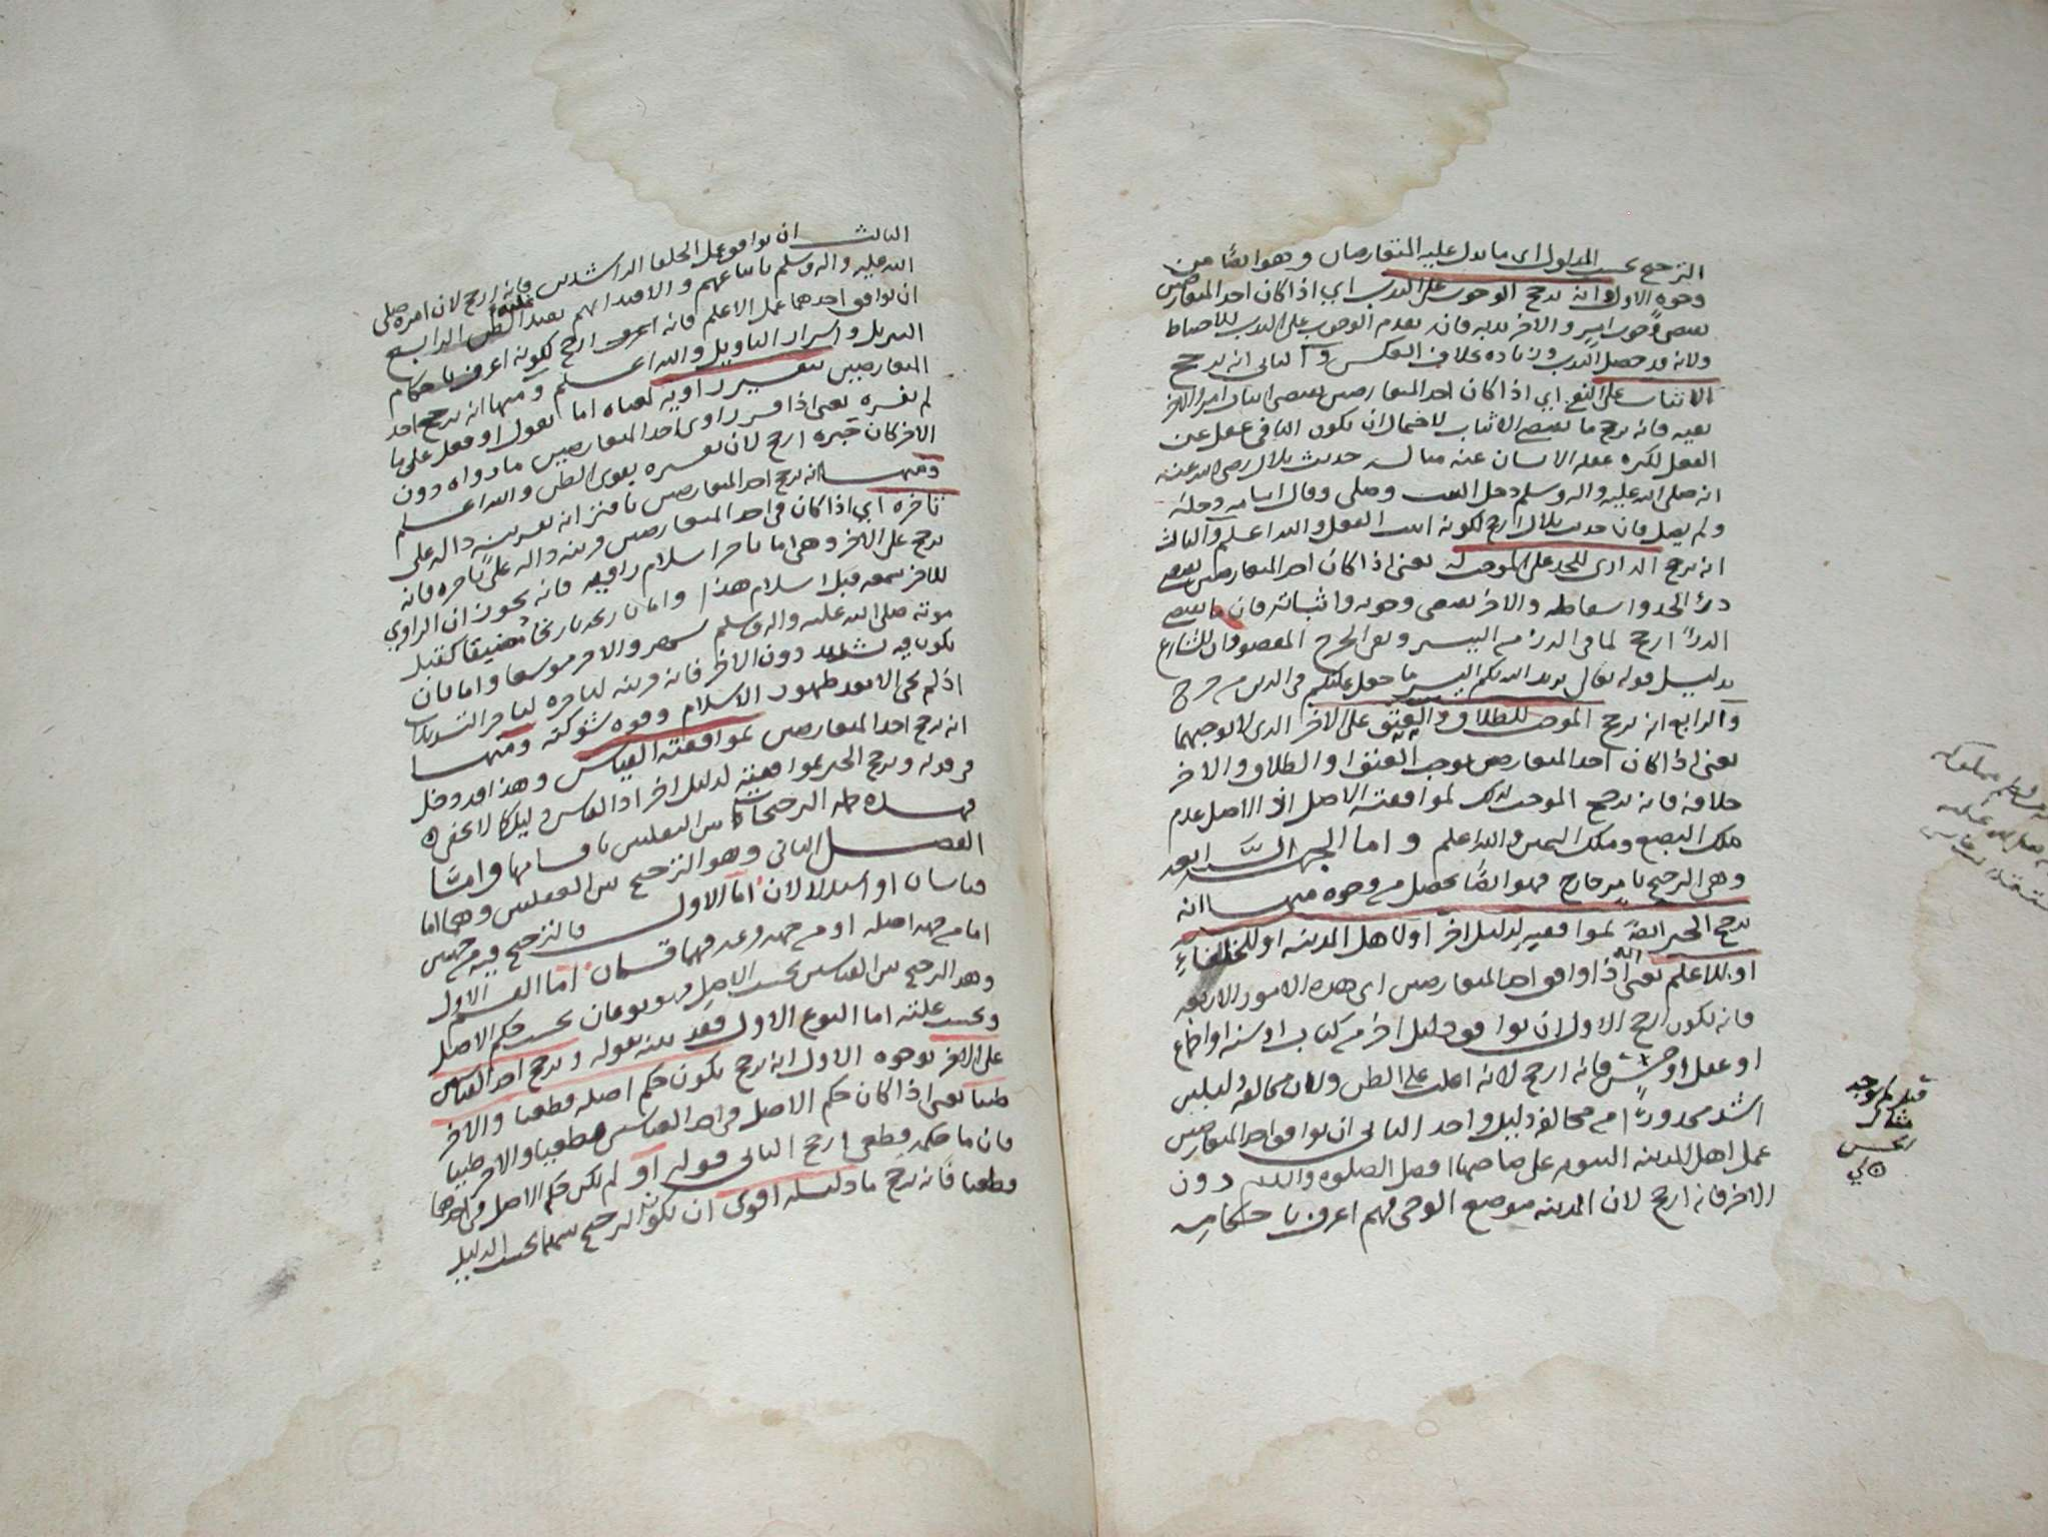 الترجيح بحسب المدلول اي ما يدل عليه المتعارضان وهو ايضا من
وجوه الاول انه يرجح الوجوب على الندب اي اذا كان احد المتعارضين
يقتضي وجوب امر والاخر ندبه فانه يقدم الوجوب على الندب للاحتياط
ولانه قد حصل الندب وزيادة بخلاف العكس والثاني انه يرجح
الاثبات على النفي اي اذا كان احد المتعارضين يقتضي اثبات امر والاخر
نفيه فانه يرجح ما يقتضي الاثبات لاحتمال ان يكون النافي غفل عن
الفعل لكثرة غفلة الانسان عنه مثاله حديث بلال رضي الله عنه
انه صلى الله عليه واله وسلم دخل البيت وصلى وقال اسامه دخله
ولم يصل فان حديث بلال ارجح لكونه اثبت الفعل والله اعلم والثالث
انه يرجح الدارئ للحد على الموجب له يعني اذا كان احد المتعارضين يقتضي
درأ الحد واسقاطه والاخر يقتضي وجوبه واثباته فان ما يقتضي
الدرأ ارجح لما في الدرء من اليسر ونفي الحرج المقصودان للشارع
بدليل قوله تعالى يريد الله بكم اليسر ما جعل عليكم في الدين من حرج
والرابع انه يرجح الموجب للطلاق والعتق على الاخر الذي لا يوجبهما
يعني اذا كان احد المتعارضين يوجب العتق او الطلاق والاخر
خلافه فانه يرجح الموجب لذلك لموافقته الاصل اذ الاصل عدم
ملك البضع وملك اليمين والله اعلم واما الجهة الرابعة
وهي الترجيح بامر خارج فهو ايضا يحصل من وجوه منها انه
يرجح الخبر ايضا لموافقته لدليل اخر او لاهل المدينه او للخلفاء
او للاعلم يعني انه اذا وافق احد المتعارضين اي هذه الامور الاربعه
فانه يكون ارجح الاول ان يوافق دليل اخر من كتاب او سنة او اجماع
او عقل او حس فانه ارجح لانه اغلب على الظن ولان مخالفة دليلين
اشد محذورا من مخالفة دليل واحد الثاني ان يوافق احد المتعارضين
عمل اهل المدينه النبويه على صاحبها افضل الصلوه والسلام دون
الاخر فانه ارجح لان المدينه موضع الوحي فهم اعرف باحكامه
الثالث ان يوافق عمل الخلفا الراشدين فانه ارجح لان امره صلى
الله عليه واله وسلم باتباعهم والاقتدا بهم يفيد غلبة الظن الرابع
ان يوافق احدهما عمل الاعلم فانه ارجح لكونه اعرف باحكام
التنزيل واسرار التاويل والله اعلم ومنها انه يرجح احد
المتعارضين بتفسير راويه لمعناه اما بقول او فعل على ما
لم يفسره يعني اذا فسر راوي احد المتعارضين ما رواه دون
الاخر كان خبره ارجح لان تفسيره يقوي الظن والله اعلم
ومنها انه يرجح احد المتعارضين باقترانه بقرينه داله على
تاخره اي اذا كان في احد المتعارضين قرينه داله على تاخره فانه
يرجح على الاخر وهي اما تاخر اسلام راويه فانه يجوز ان الراوي
للاخر سمعه قبل اسلام هذا واما تاريخه تاريخا مضيقا كقبل
موته صلى الله عليه واله وسلم بشهر والاخر موسعا واما بان
يكون فيه تشديد دون الاخر فانه قرينه لتاخره لتاخر التشديدات
اذ لم تجئ الا بعد ظهور الاسلام وقوة شوكته ومنها
انه يرجح احد المتعارضين بموافقته القياس وهذا قد دخل
في قوله ويرجح الخبر بموافقته لدليل اخر اذ القياس دليل كما لا يخفى
فهذه جملة الترجيحات بين النقليين باقسامها واما
الفصل الثاني وهو الترجيح بين العقليين وهما اما
قياسان او استدلالان اما الاول فالترجيح فيه من جهتين
اما من جهة اصله او من جهة فرعه فهما قسمان اما القسم الاول
وهو الترجيح بين القياسين بحسب الاصل فهو نوعان بحسب حكم الاصل
وبحسب علته اما النوع الاول فقد بينه بقوله ويرجح احد القياسين
على الاخر بوجوه الاول انه يرجح بكون حكم اصله قطعيا والاخر
ظنيا يعني اذا كان حكم الاصل في احد القياسين قطعيا والاخر ظنيا
فان ما حكمه قطعي ارجح الثاني قوله او لم يكن حكم الاصل في احدهما
قطعيا فانه يرجح ما دليله اقوى ان يكون الترجيح بينهما بحسب الدليل